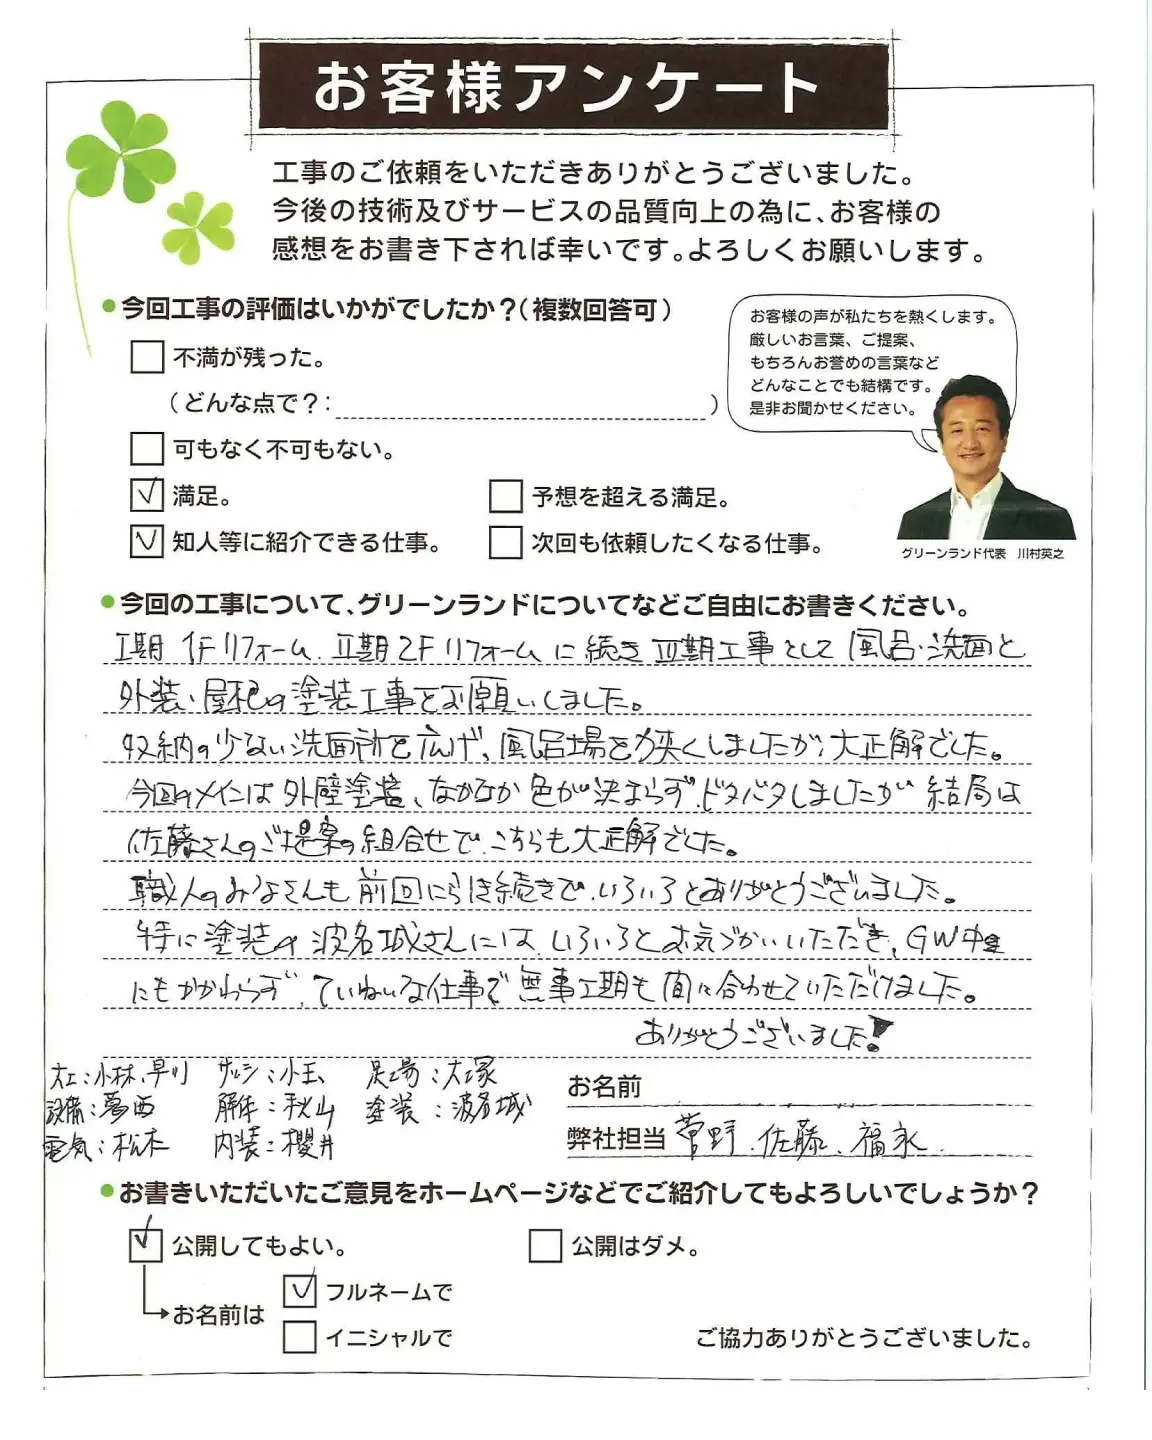 お客様アンケート
工事のご依頼をいただきありがとうございました。
今後の技術及びサービスの品質向上の為に、お客様の
感想をお書き下されば幸いです。よろしくお願いします。
●今回工事の評価はいかがでしたか？（複数回答可）
お客様の声が私たちを熱くします。
厳しいお言葉、ご提案、
もちろんお誉めの言葉など
どんなことでも結構です。
是非お聞かせください。
不満が残った。
（どんな点で？：　）
可もなく不可もない。
満足。
予想を超える満足。
知人等に紹介できる仕事。
次回も依頼したくなる仕事。
グリーンランド代表　川村英之
●今回の工事について、グリーンランドについてなどご自由にお書きください。
Ⅰ期 1Fリフォーム、Ⅱ期2Fリフォームに続きⅢ期工事として風呂・洗面と
外装・屋根の塗装工事をお願いしました。
収納の少ない洗面所を広げ、風呂場を狭くしましたが、大正解でした。
今回のメインは外壁塗装、なかなか色が決まらず、ドタバタしましたが結局は
佐藤さんのご提案の組合せで、こちらも大正解でした。
職人のみなさんも前回に引き続きで、いろいろとありがとうございました。
特に塗装の波名城さんには、いろいろとお気づかいいただき、GW中
にもかかわらず、ていねいな仕事で無事工期も間に合わせていただけました。
ありがとうございました!
大工：小林、早川　サッシ：小玉　足場：大塚
設備：葛西　解体：秋山　塗装：波名城
電気：松本　内装：櫻井
お名前
弊社担当 菅野、佐藤、福永
●お書きいただいたご意見をホームページなどでご紹介してもよろしいでしょうか？
公開してもよい。
公開はダメ。
お名前は
フルネームで
イニシャルで
ご協力ありがとうございました。